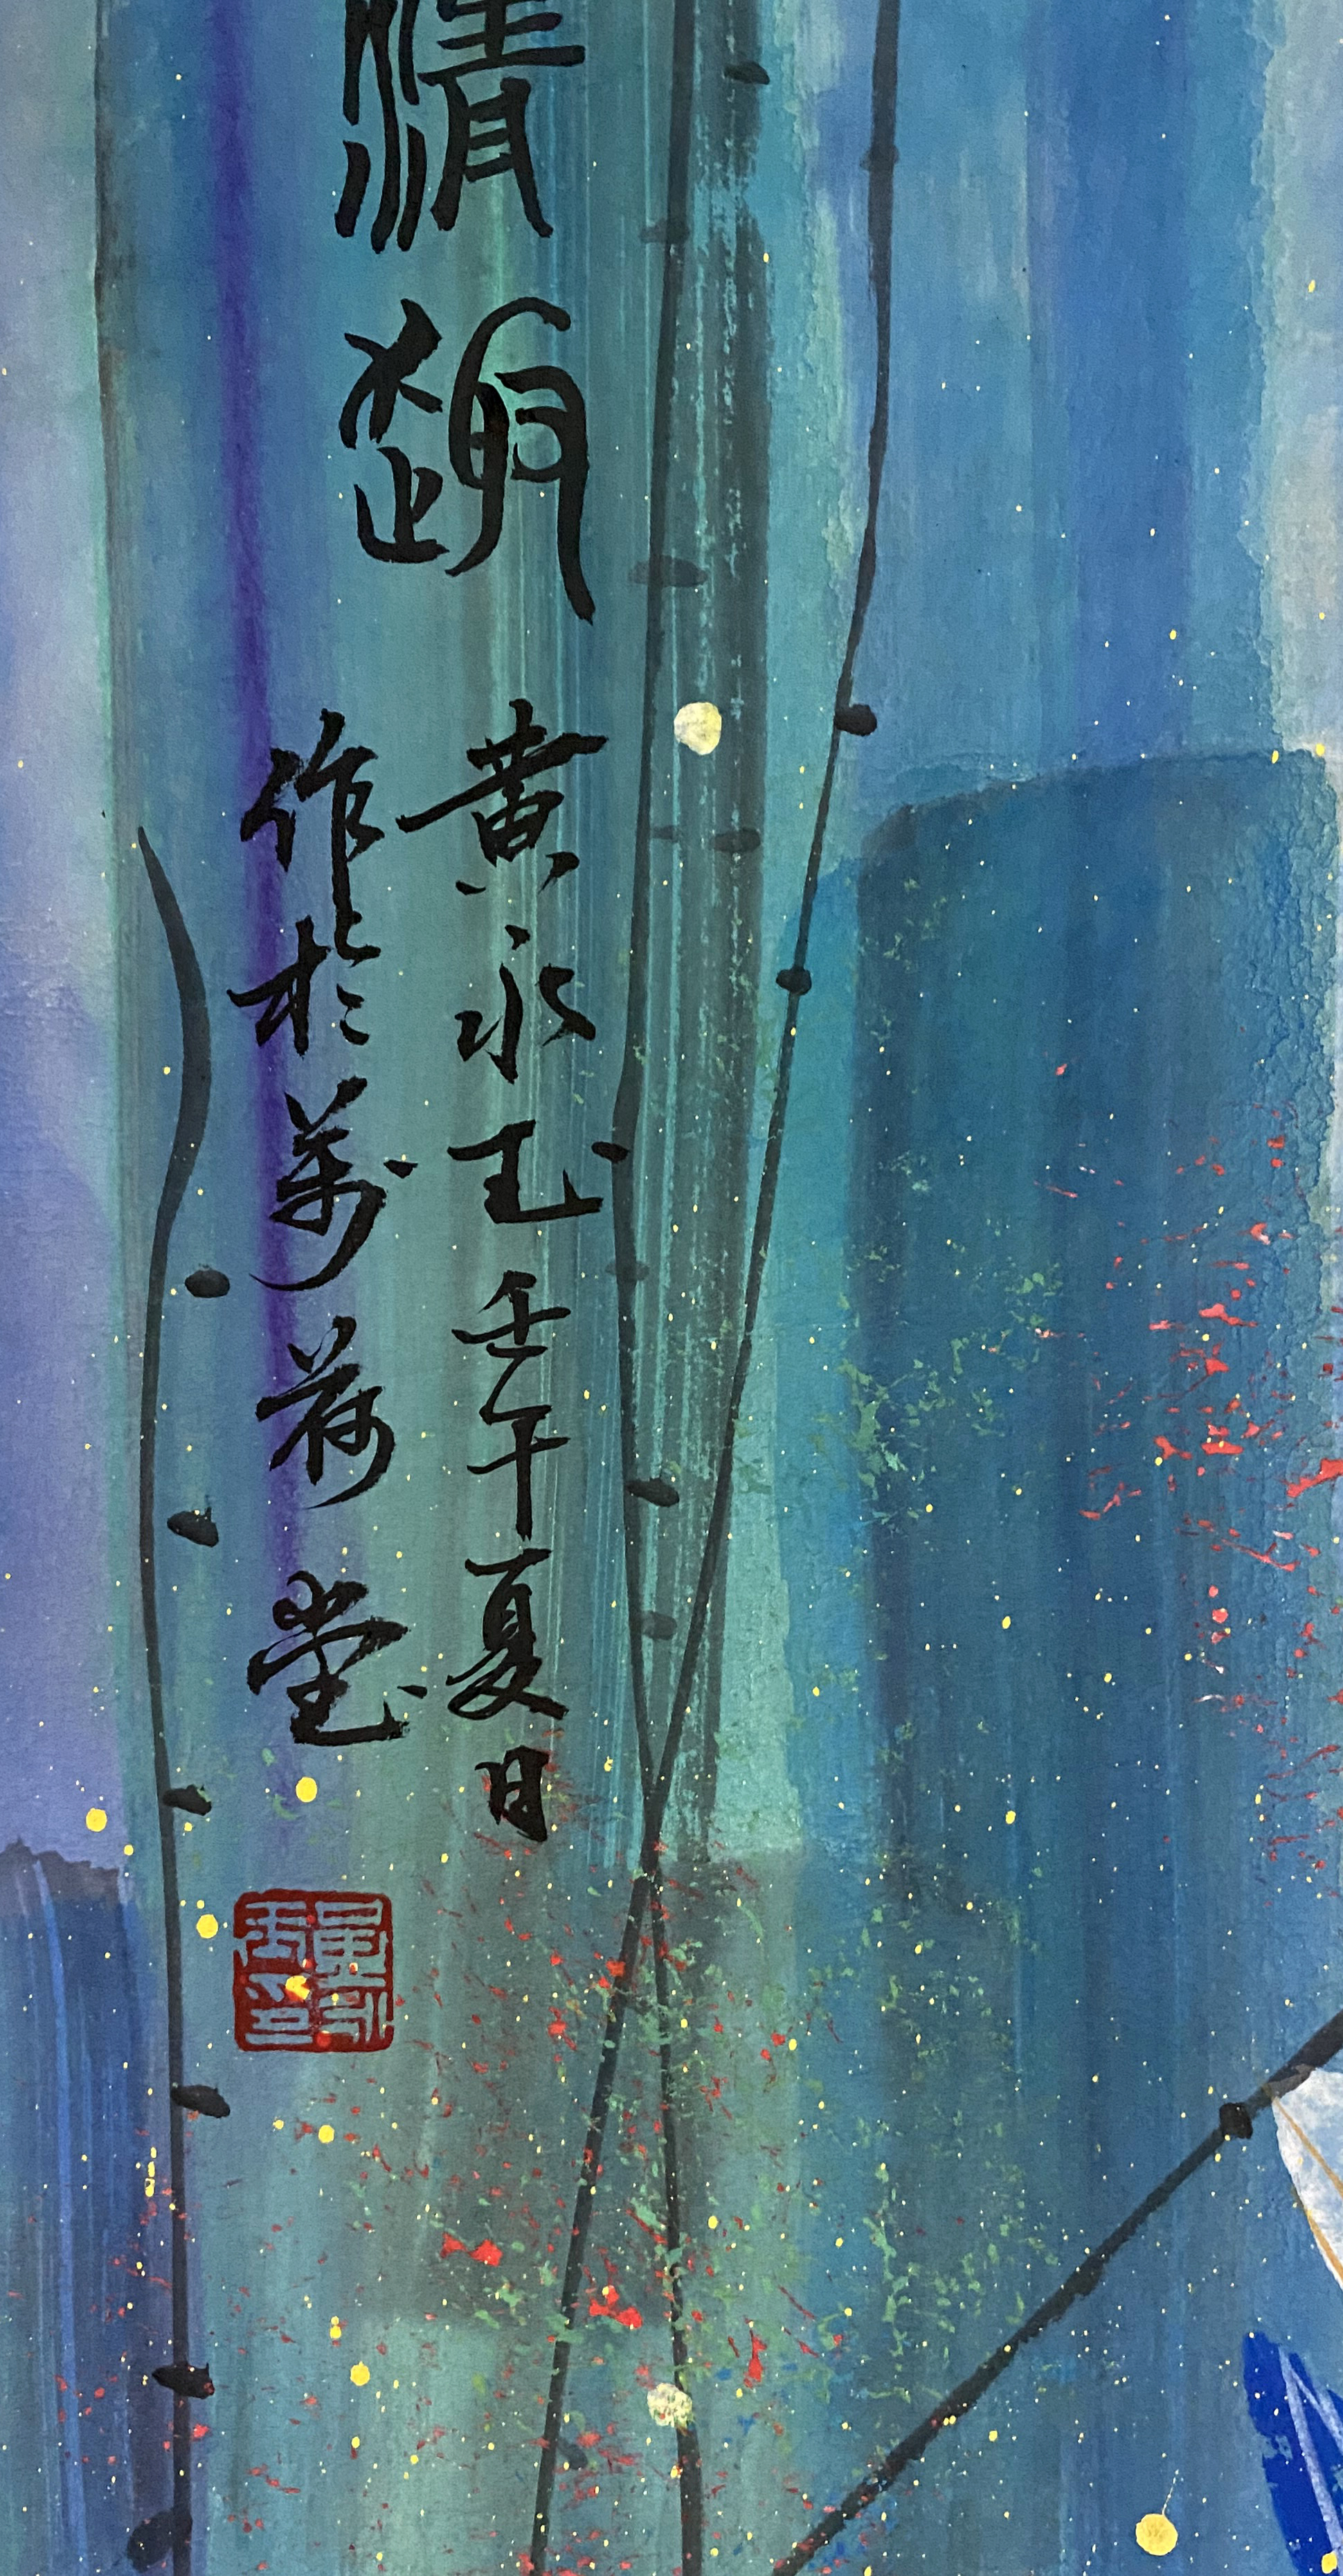 清趣
黄永玉壬午夏日
作於萬荷堂
黃永
玉印